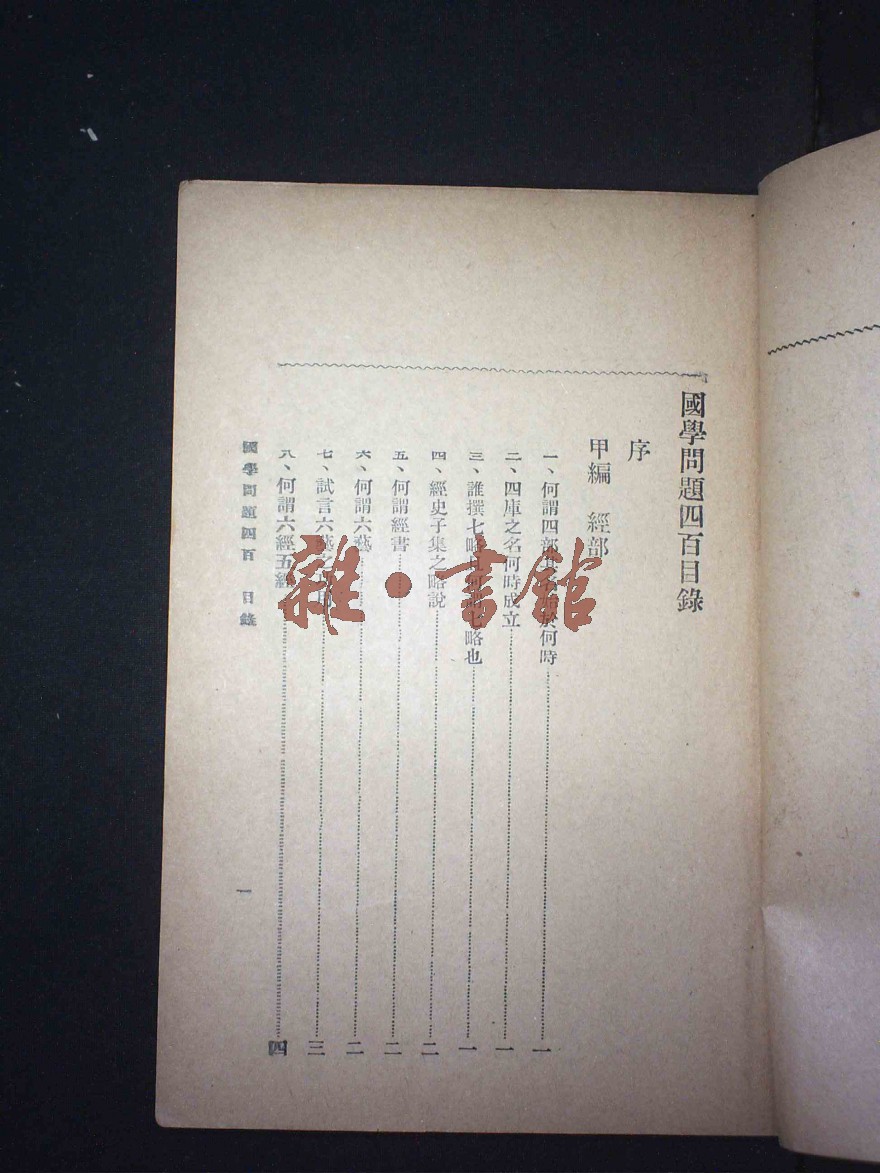 國學問題四百目錄
序
甲編 經部
一、何謂四部其名始於何時……一
二、四庫之名何時成立……一
三、誰撰七略且何謂七略也……一
四、經史子集之略說……二
五、何謂經書……二
六、何謂六藝……二
七、試言六藝之……三
八、何謂六經五經……四
國學問題四百 目錄
一
雜·書館